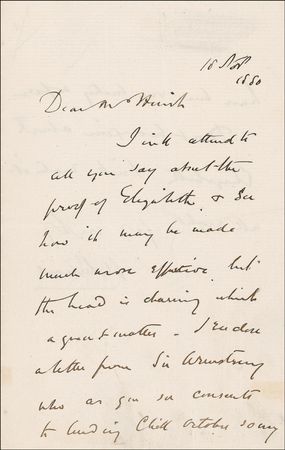 16 Nov
1880
Dear Mr Huish
I will attend to
all you say about the
proof of Elizabeth & see
how it may be made
much more effective but
the head is charming which
a great matter - I enclose
a letter from Sir
who as you see consents
to lending Chill October so my